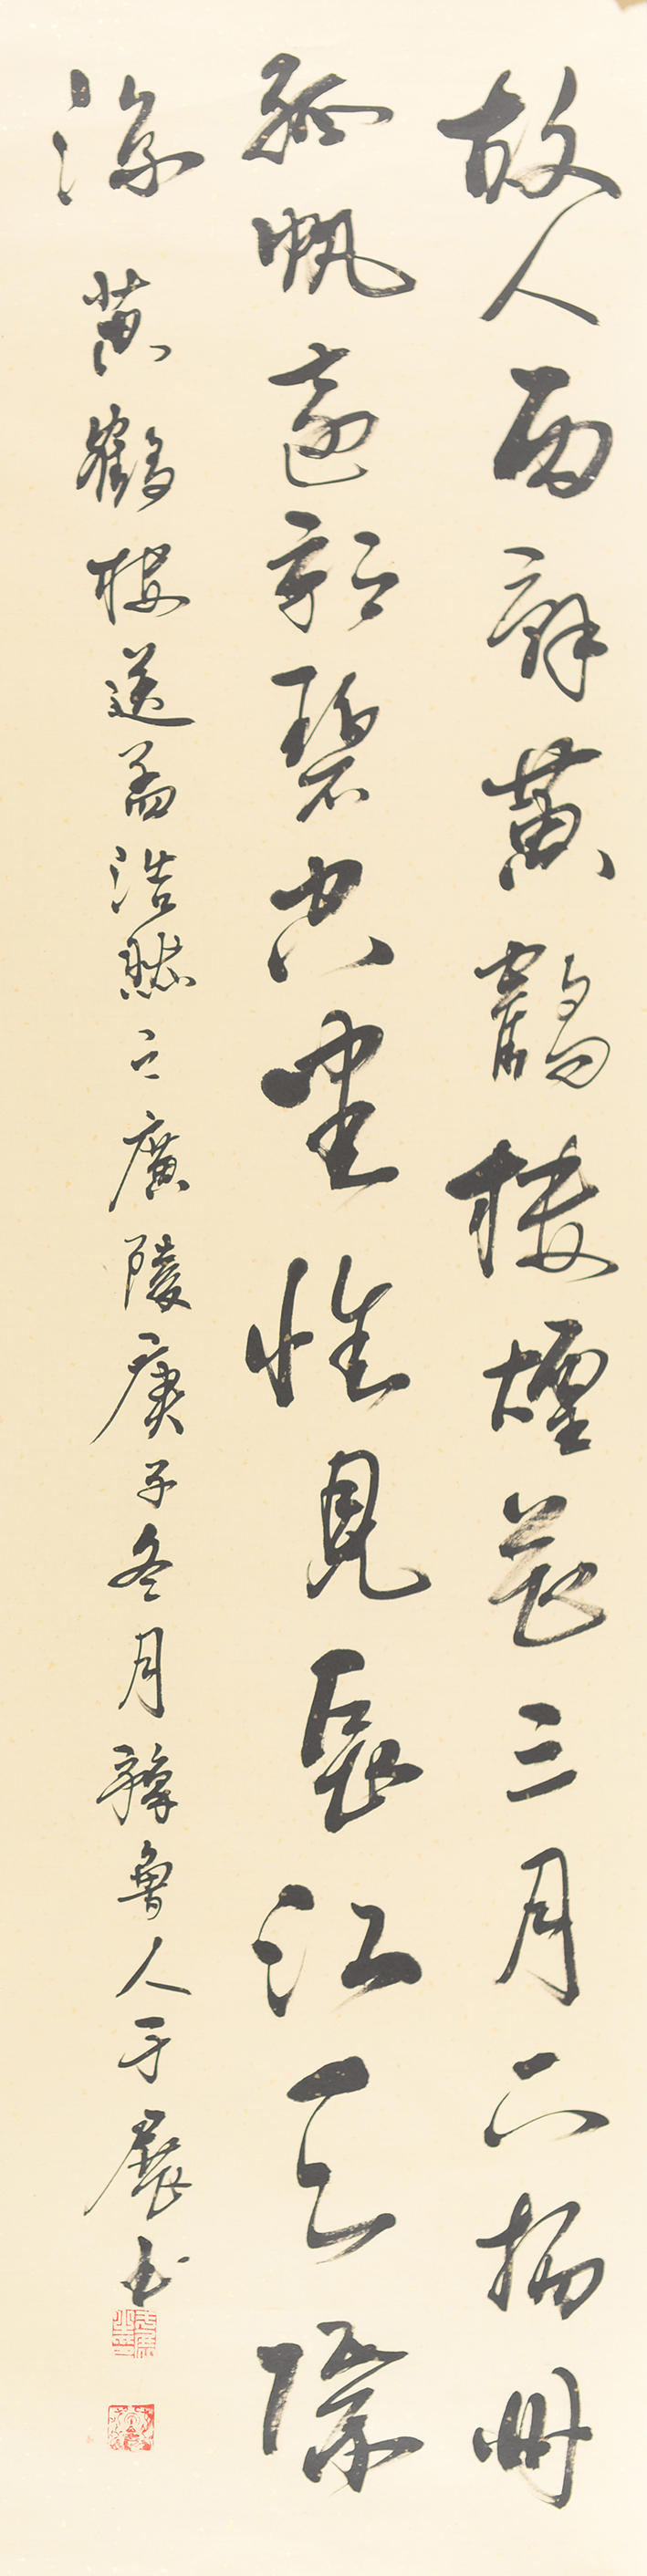 故人西辭黃鶴樓煙花三月下揚州
孤帆遠影碧空盡惟見長江天際
流 黃鶴樓送孟浩然之廣陵庚子冬月 魯人于展書